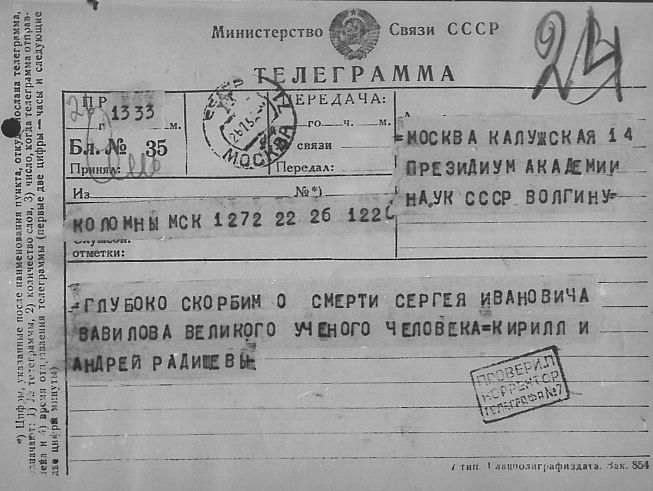 Министерство Связи СССР
ТЕЛЕГРАММА
24
ПР
1333
г. м.
Бл. № 35
Принял:
МОСКВА
ПЕРЕДАЧА:
го ч. м.
связи
Передал:
Из №*)
КОЛОМНЫ МСК 1272 22 26 1226
Служебн.
отметки:
=МОСКВА КАЛУЖСКАЯ 14
ПРЕЗИДИУМ АКАДЕМИИ
НАУК СССР ВОЛГИНУ=
=ГЛУБОКО СКОРБИМ О СМЕРТИ СЕРГЕЯ ИВАНОВИЧА
ВАВИЛОВА ВЕЛИКОГО УЧЕНОГО ЧЕЛОВЕКА=КИРИЛЛ И
АНДРЕЙ РАДИЩЕВЫ=
ПРОВЕРИЛ
КОРРЕКТОР
ТЕЛЕГРАФА №7
7 тип. Главполиграфиздата. Зак. 854
*) Цифры, указанные после наименования пункта, откуда послана телеграмма,
означают: 1) № телеграммы, 2) количество слов, 3) число, когда телеграмма отправ-
лена и 4) время отправления телеграммы (первые две цифры — часы и следующие
две цифры минуты)